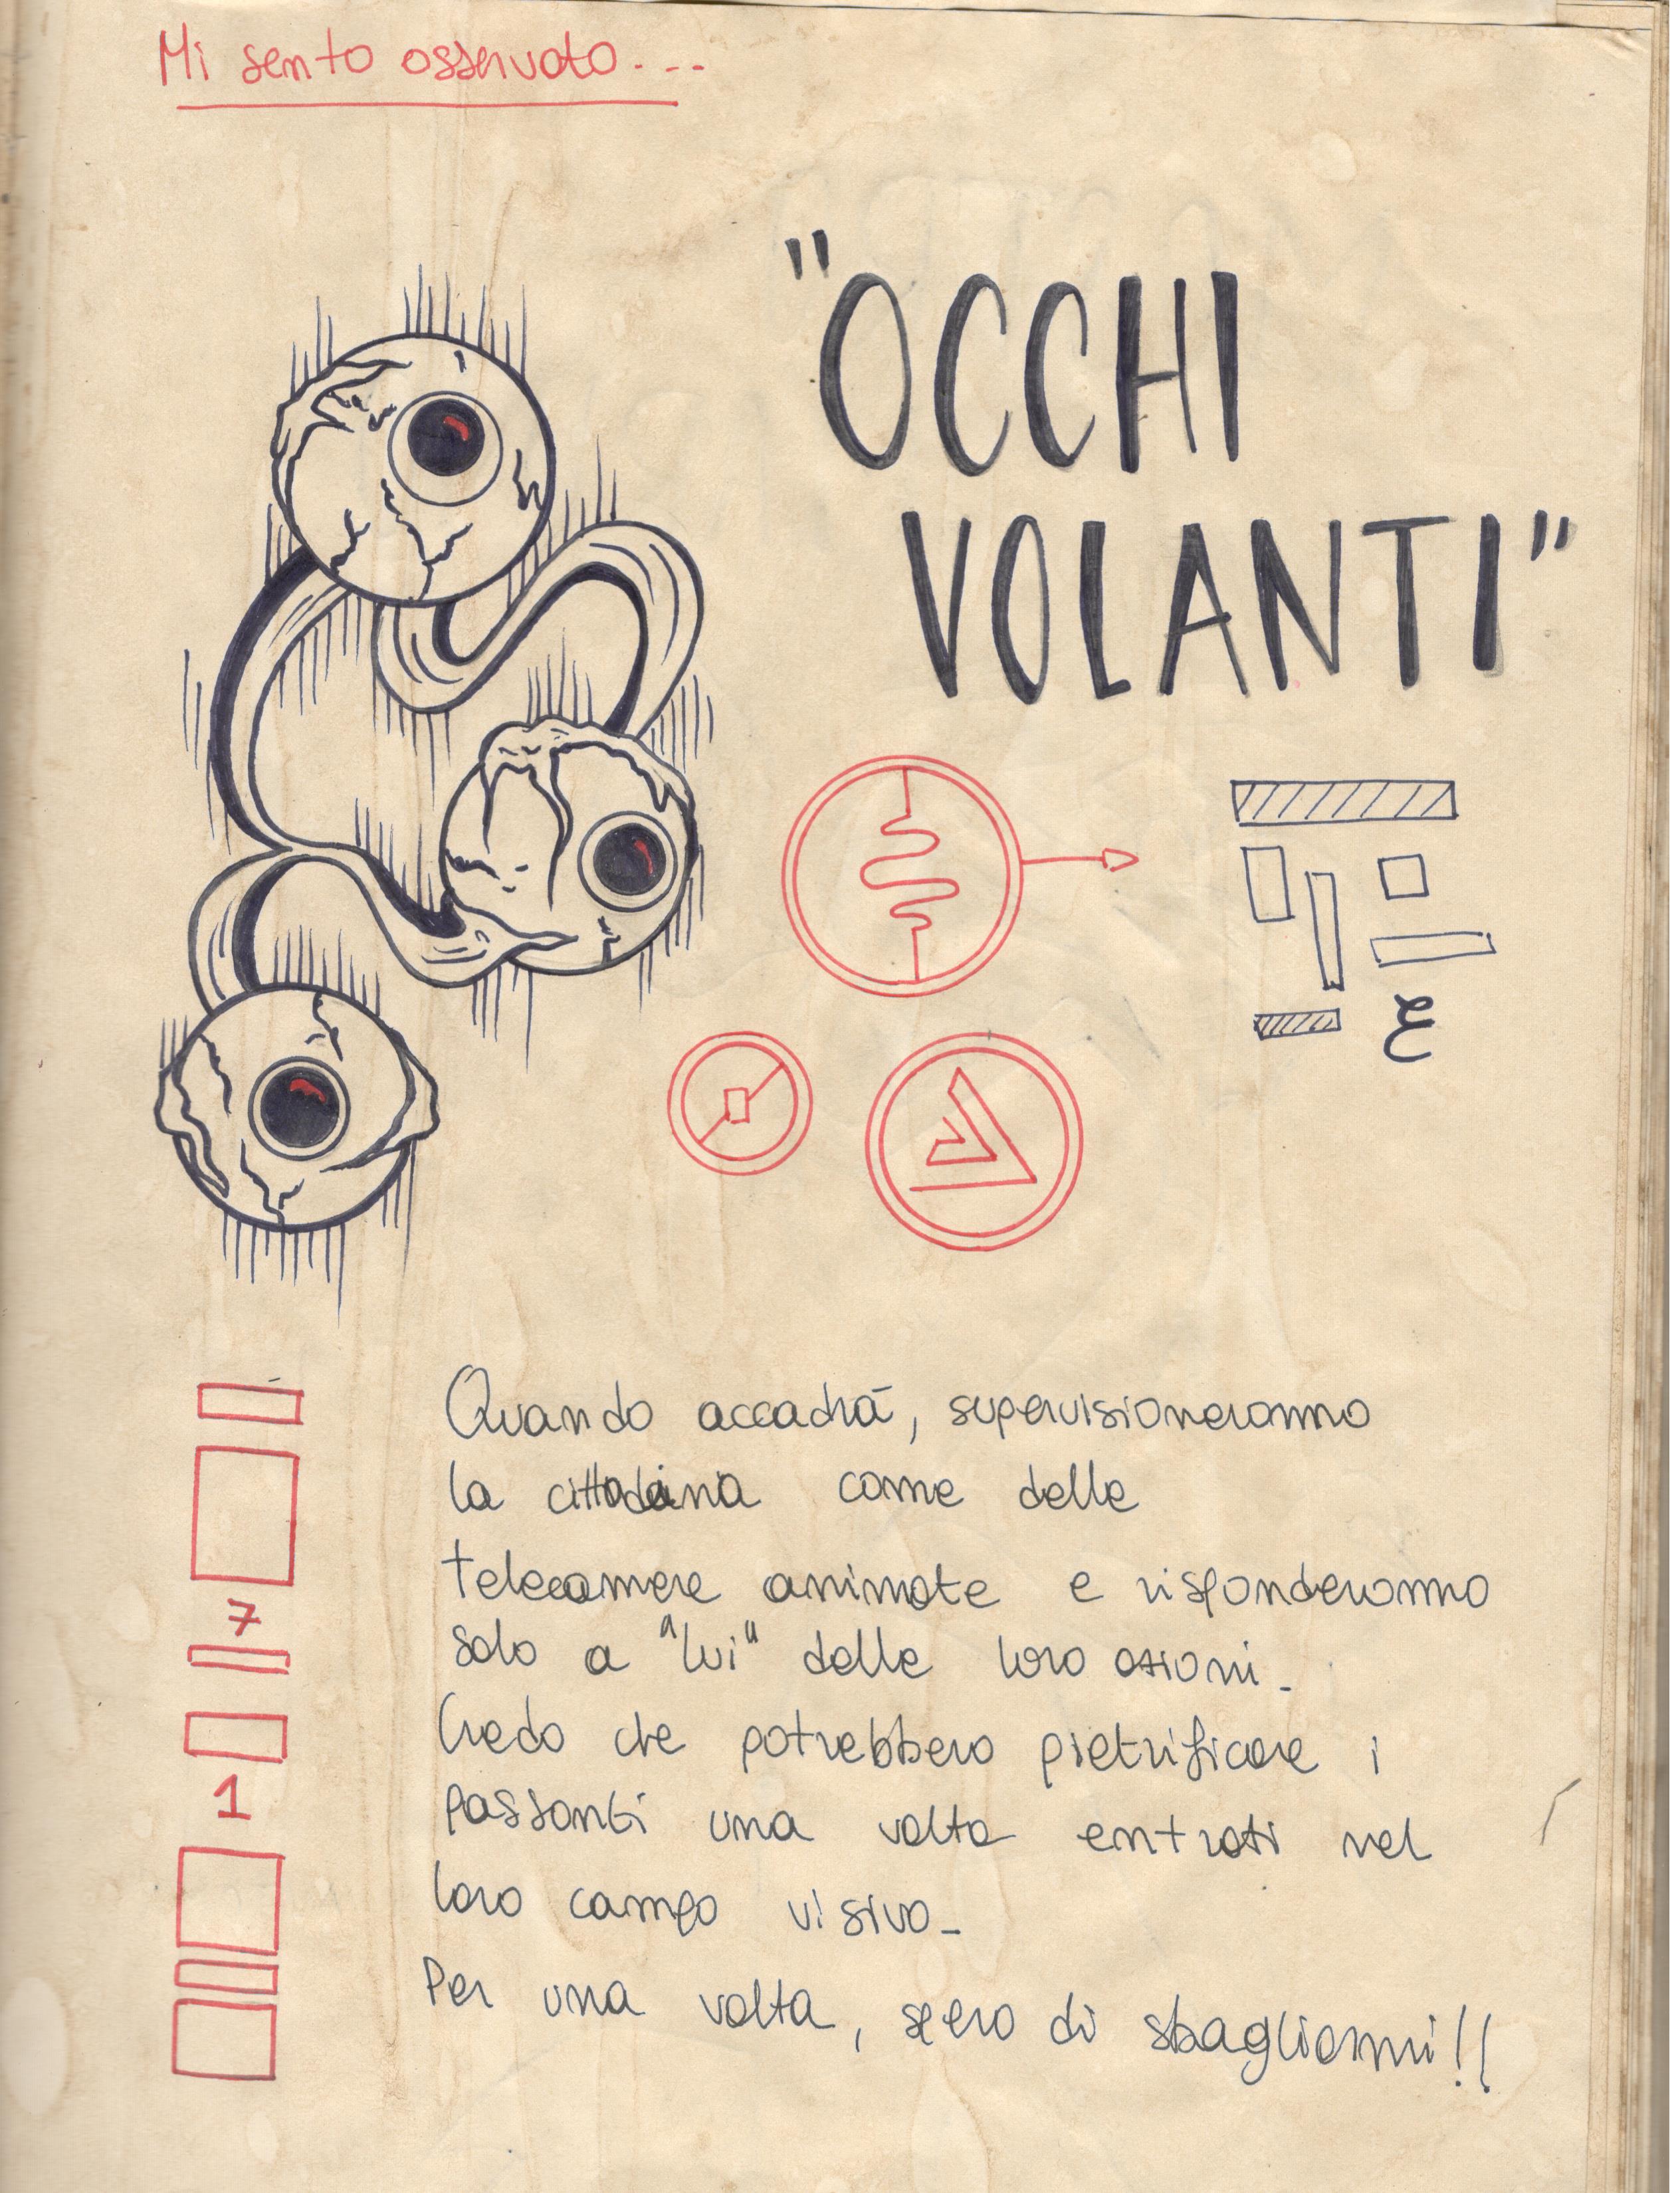 Mi sento osservato...
"OCCHI
VOLANTI"
Quando accadrà, supervisioneranno
la cittadina come delle
telecamere animate e risponderanno
solo a "lui" delle loro azioni.
Credo che potrebbero pietrificare i
passanti una volta entrati nel
loro campo visivo.
Per una volta, spero di sbagliarmi!!
7
1